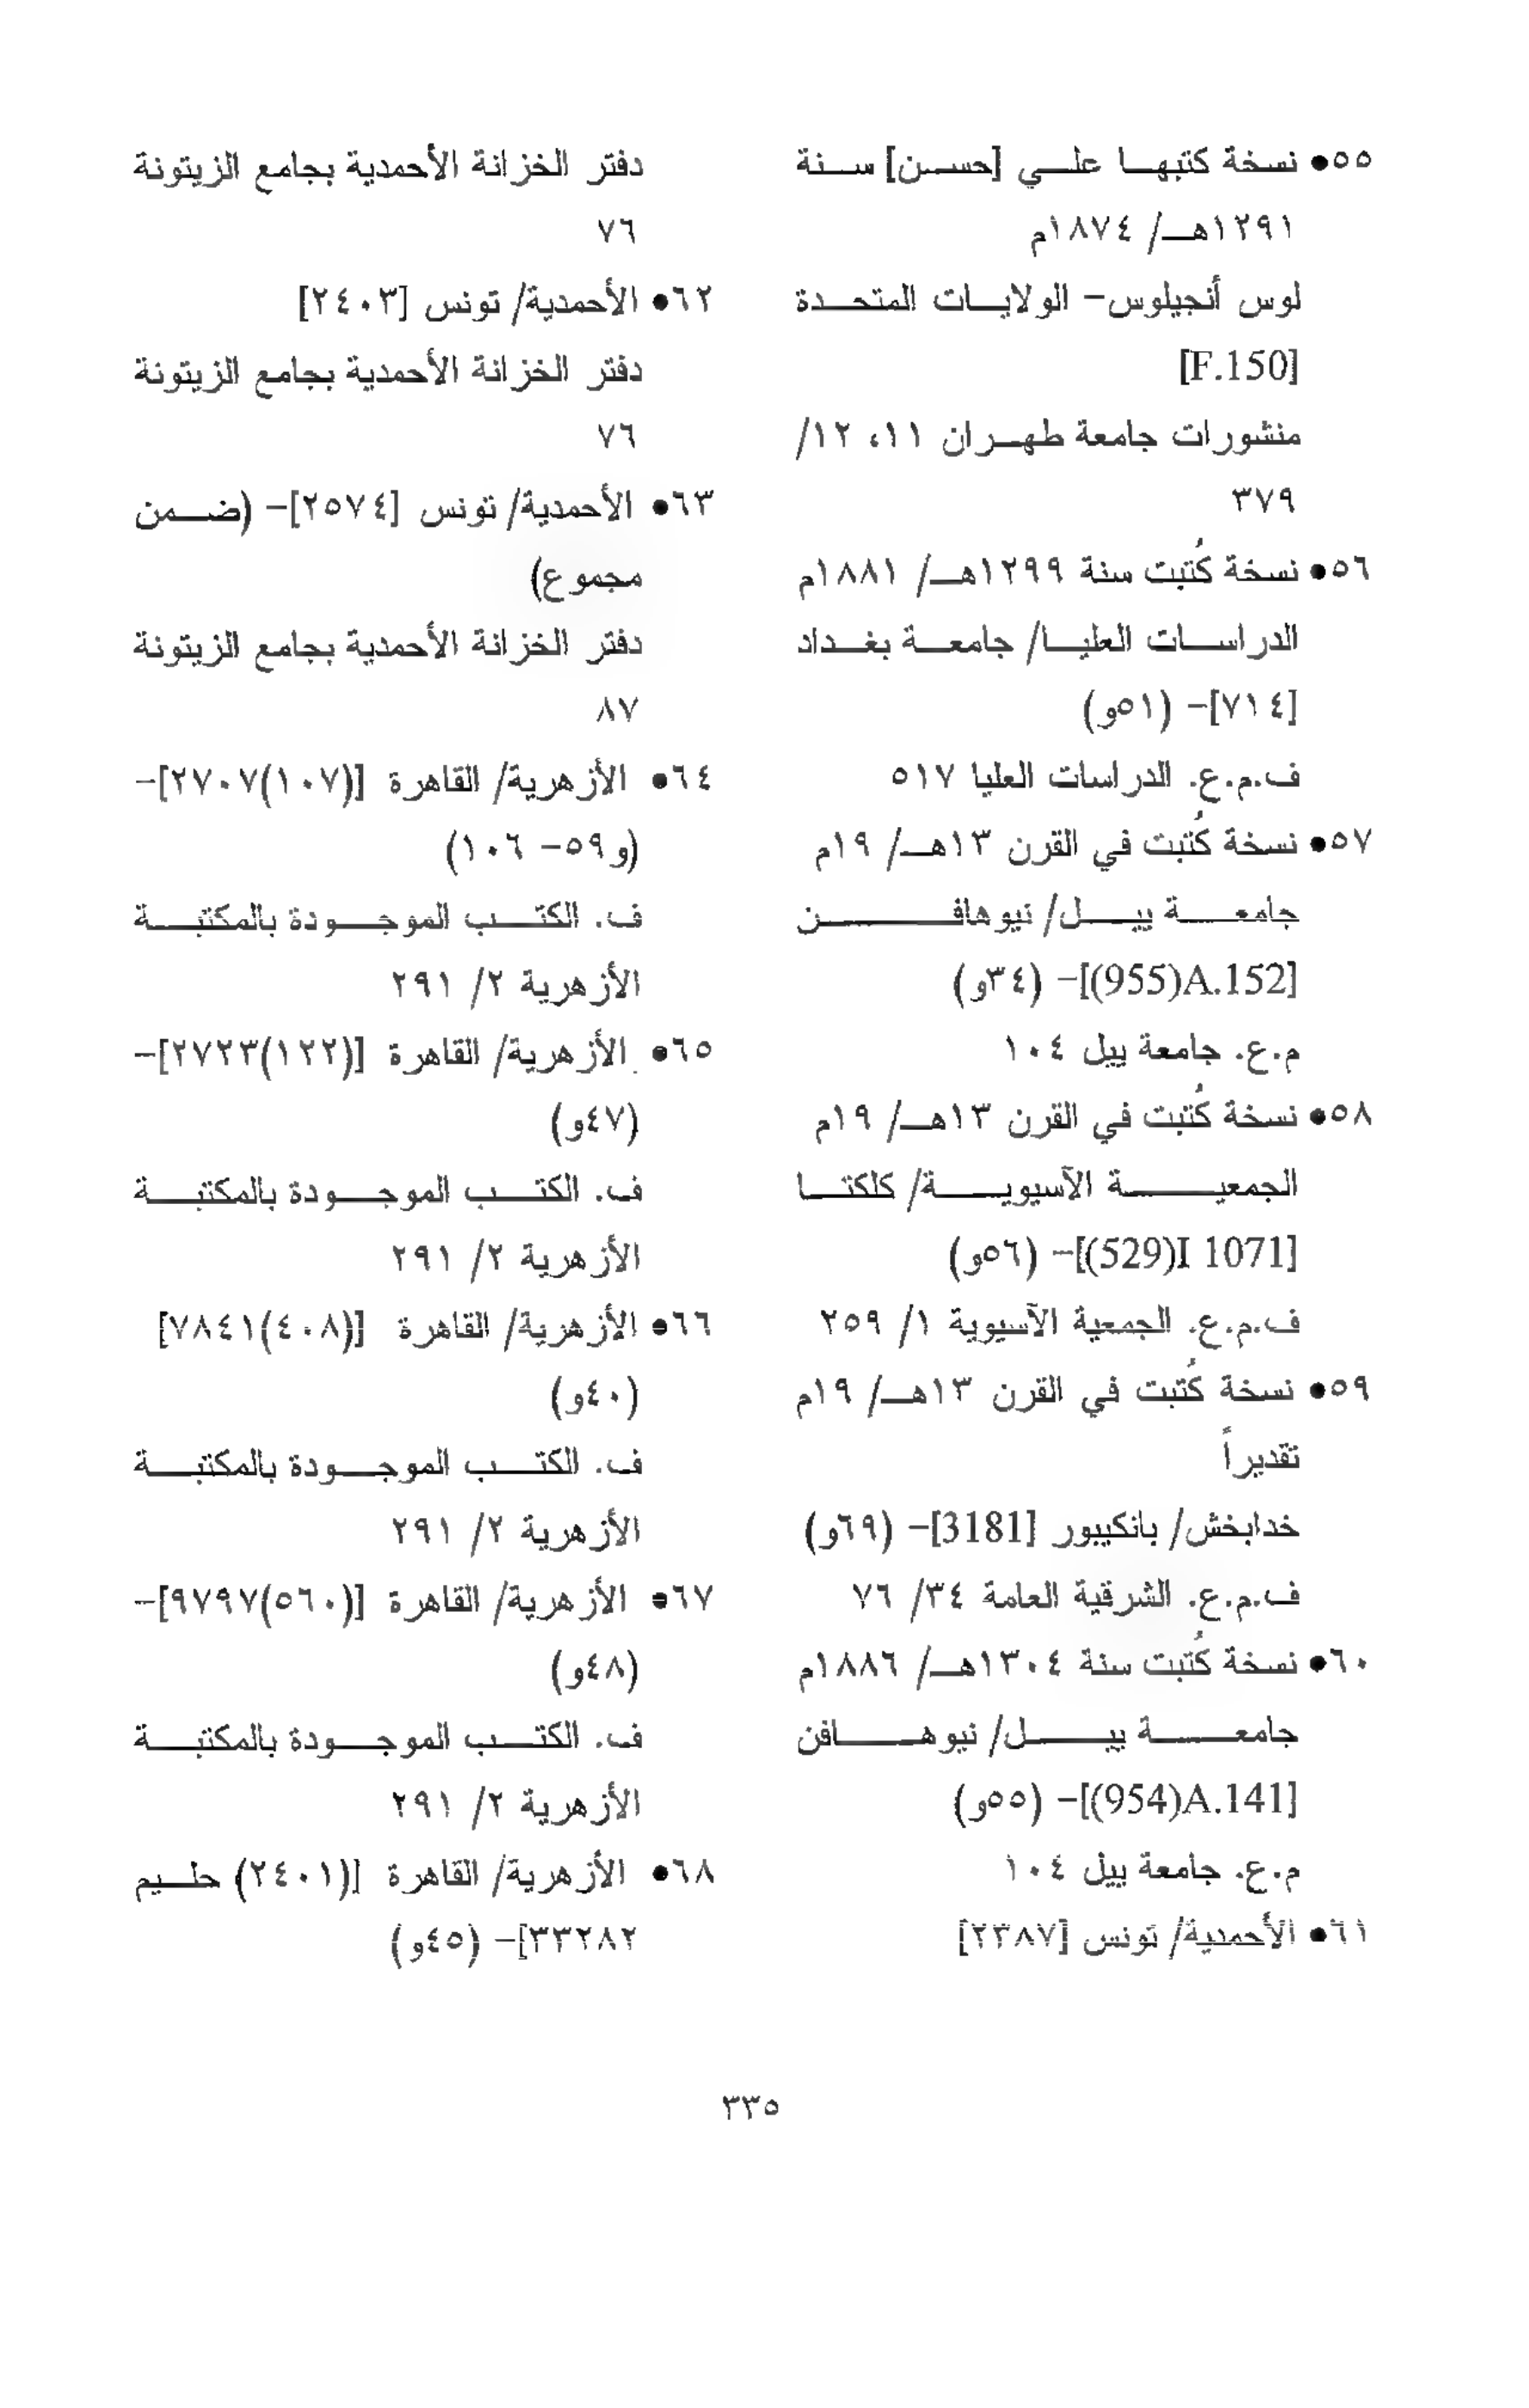 ٥٥● نسخة كتبها علي [حسن] سنة
١٢٩١هـ/ ١٨٧٤م
لوس أنجيلوس- الولايات المتحدة
[F.150]
منشورات جامعة طهران ١١، ١٢/
٣٧٩
٥٦● نسخة كُتبت سنة ١٢٩٩هـ/ ١٨٨١م
الدراسات العليا/ جامعة بغداد
[٧١٤]- (٥١و)
ف.م.ع. الدراسات العليا ٥١٧
٥٧● نسخة كُتبت في القرن ١٣هـ/ ١٩م
جامعة ييل/ نيوهافن
[A.152(955)]- (٣٤و)
م.ع. جامعة ييل ١٠٤
٥٨● نسخة كُتبت في القرن ١٣هـ/ ١٩م
الجمعية الآسيوية/ كلكتا
[I 1071(529)]- (٥٦و)
ف.م.ع. الجمعية الآسيوية ١/ ٢٥٩
٥٩● نسخة كُتبت في القرن ١٣هـ/ ١٩م
تقديراً
خدابخش/ بانكيبور [3181]- (٦٩و)
ف.م.ع. الشرقية العامة ٣٤/ ٧٦
٦٠● نسخة كُتبت سنة ١٣٠٤هـ/ ١٨٨٦م
جامعة ييل/ نيوهافن
[A.141(954)]- (٥٥و)
م.ع. جامعة ييل ١٠٤
٦١● الأحمدية/ تونس [٢٣٨٧]
دفتر الخزانة الأحمدية بجامع الزيتونة
٧٦
٦٢● الأحمدية/ تونس [٢٤٠٣]
دفتر الخزانة الأحمدية بجامع الزيتونة
٧٦
٦٣● الأحمدية/ تونس [٢٥٧٤]- (ضمن
مجموع)
دفتر الخزانة الأحمدية بجامع الزيتونة
٨٧
٦٤● الأزهرية/ القاهرة [(١٠٧)٢٧٠٧]-
(و٥٩- ١٠٦)
ف. الكتب الموجودة بالمكتبة
الأزهرية ٢/ ٢٩١
٦٥● الأزهرية/ القاهرة [(١٢٢)٢٧٢٣]-
(٤٧و)
ف. الكتب الموجودة بالمكتبة
الأزهرية ٢/ ٢٩١
٦٦● الأزهرية/ القاهرة [(٤٠٨)٧٨٤١]
(٤٠و)
ف. الكتب الموجودة بالمكتبة
الأزهرية ٢/ ٢٩١
٦٧● الأزهرية/ القاهرة [(٥٦٠)٩٧٩٧]-
(٤٨و)
ف. الكتب الموجودة بالمكتبة
الأزهرية ٢/ ٢٩١
٦٨● الأزهرية/ القاهرة [(٢٤٠١) حليم
٣٣٢٨٢]- (٤٥و)
٣٣٥